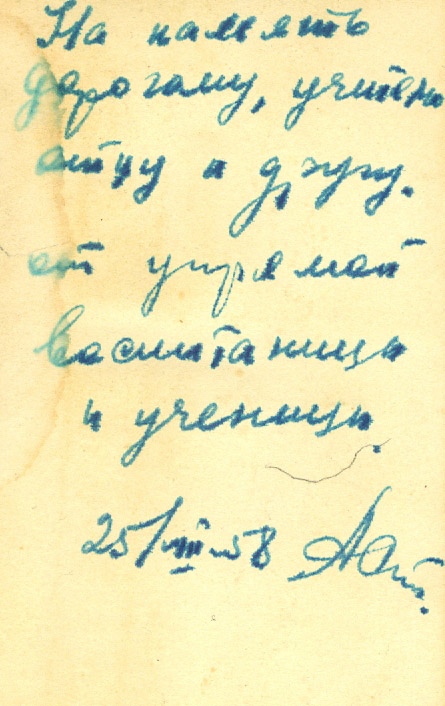 На память
дорогому, учителю
отцу и другу.
от упрямой
воспитаницы
и ученицы.
25/III-58